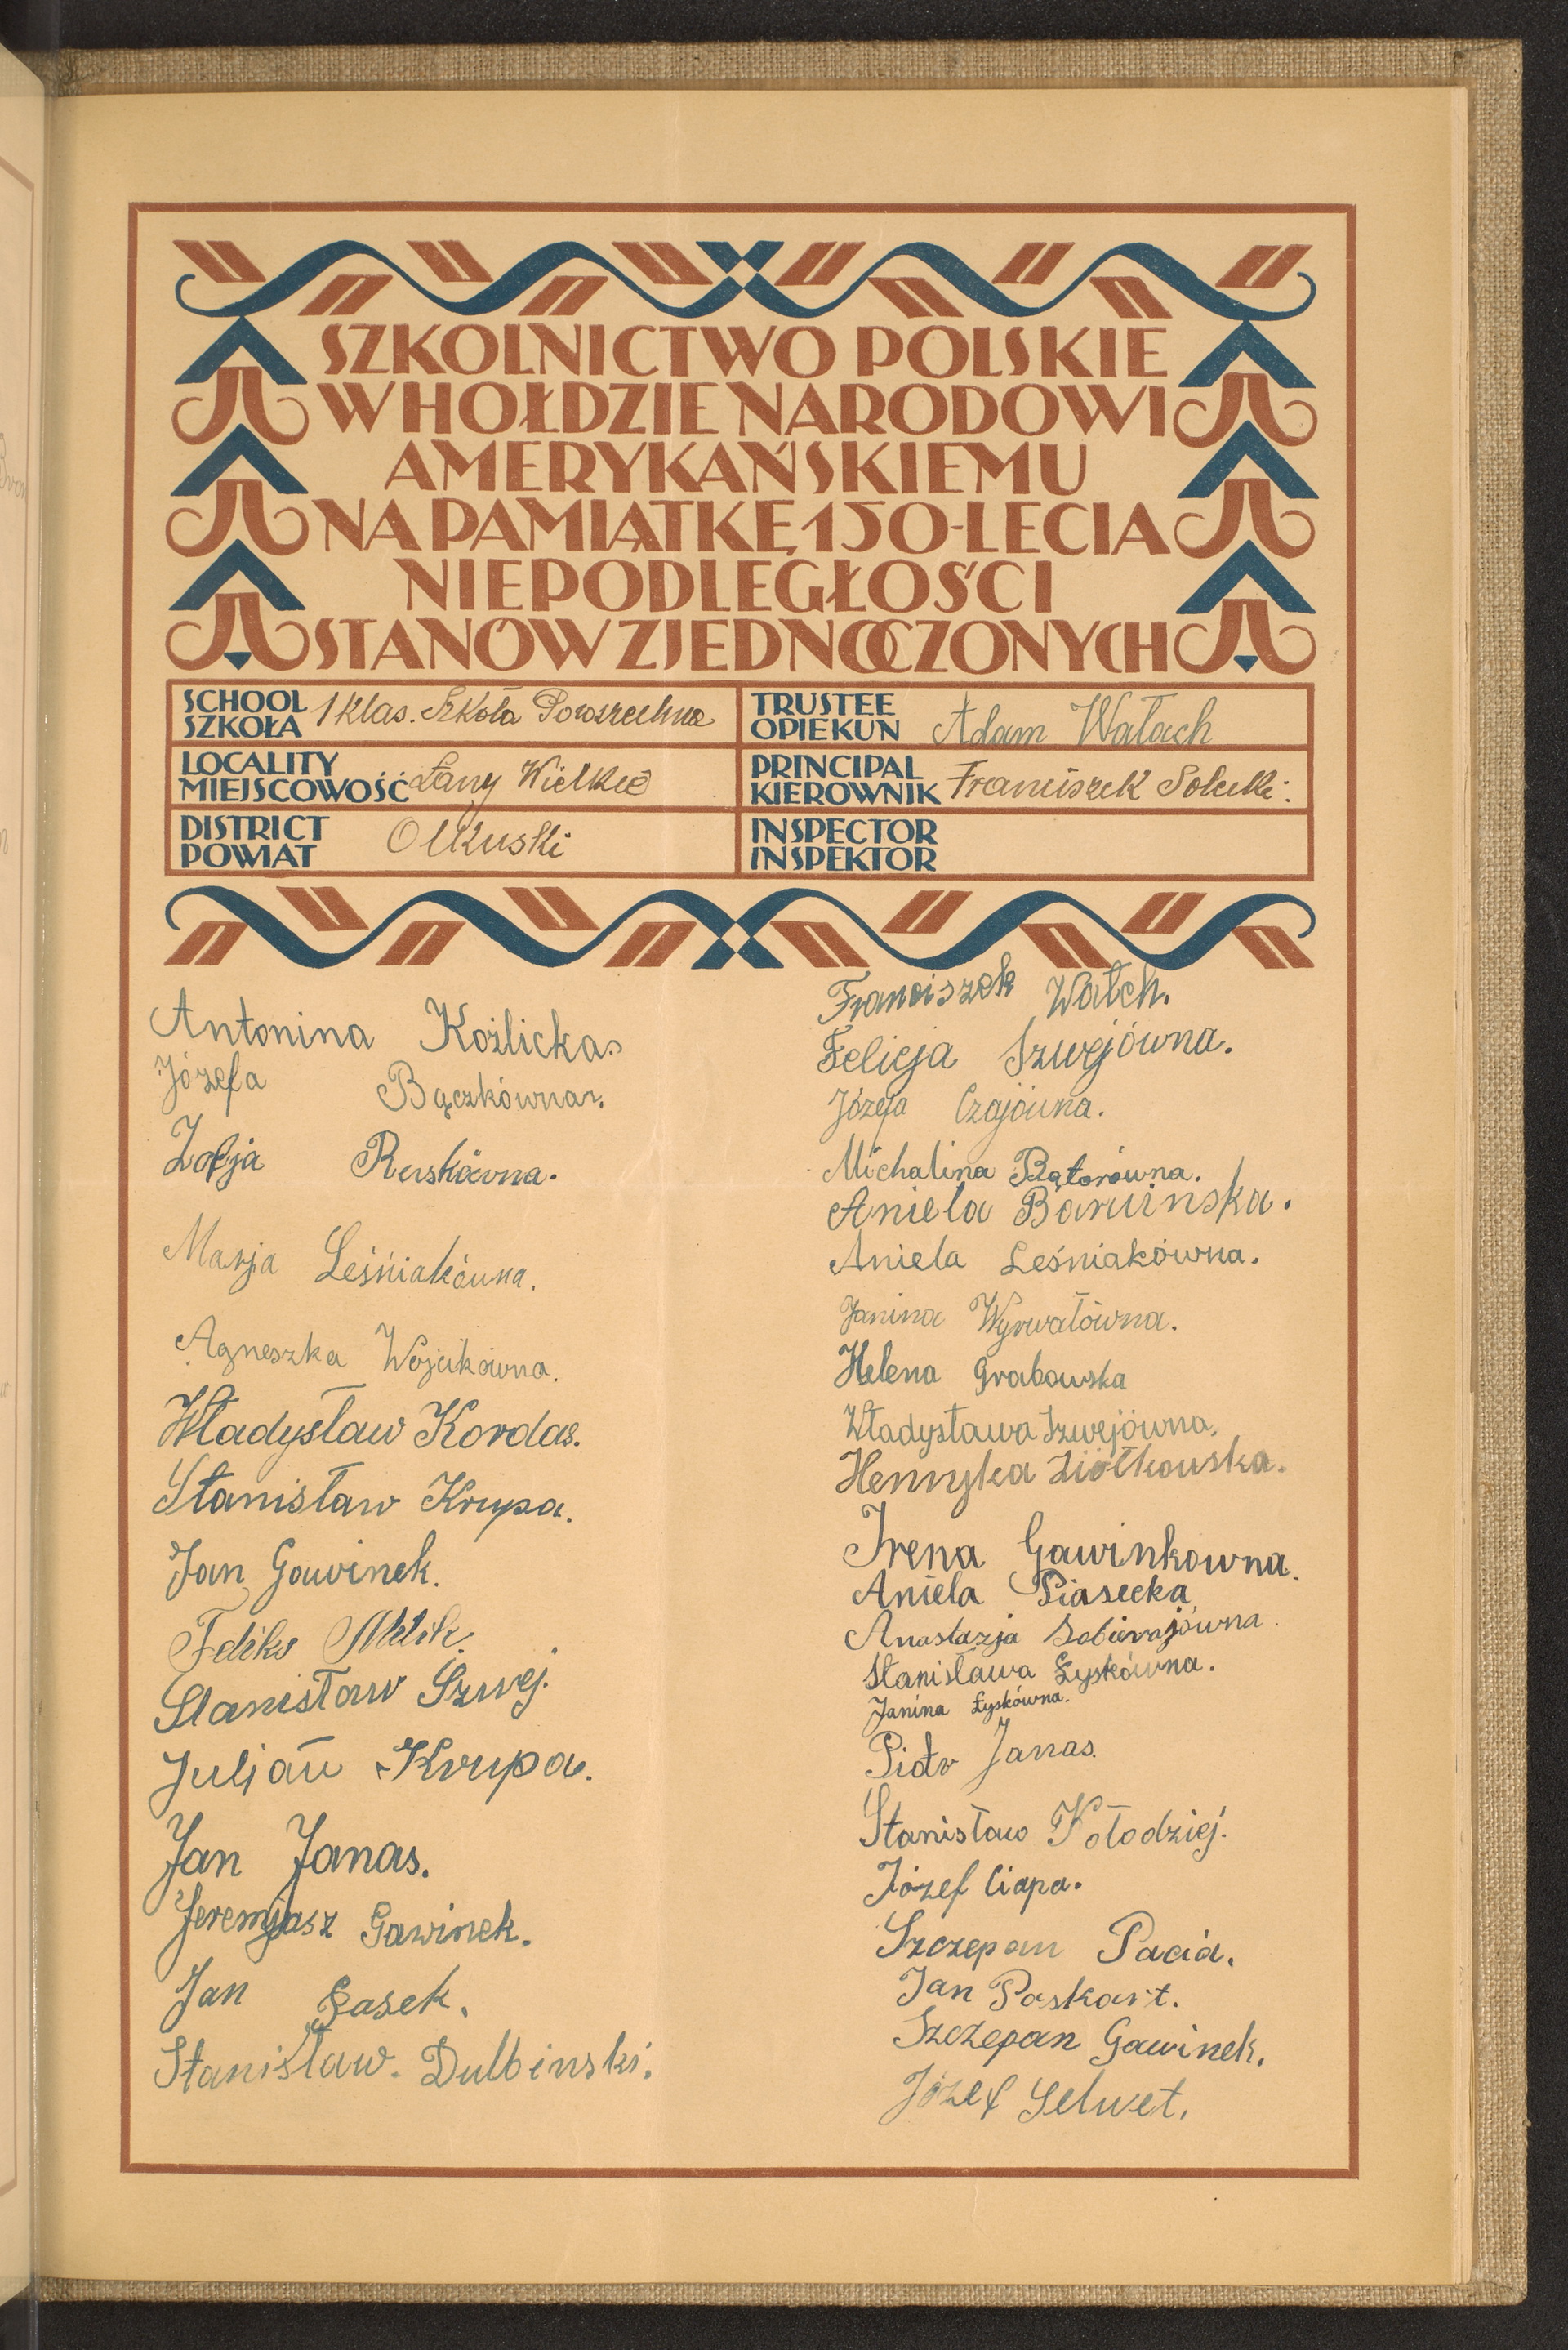 SZKOLNICTWO POLSKIE
W HOŁDZIE NARODOWI
AMERYKAŃSKIEMU
NA PAMIĄTKĘ 150-LECIA
NIEPODLEGŁOŚCI
STANÓW ZJEDNOCZONYCH
SCHOOL
SZKOŁA
1 klas. Szkoła Powszechna
TRUSTEE
OPIEKUN
Adam Wałach
LOCALITY
MIEJSCOWOŚĆ
Łany Wielkie
PRINCIPAL
KIEROWNIK
Franciszek
DISTRICT
POWIAT
Olkuski
INSPECTOR
INSPEKTOR
Antonina Koźlicka.
Józefa Bączkówna.
Zofja Ruskówna.
Marja Leśniakówna.
Agneszka Wójcikówna.
Władysław Kordas.
Stanisław Krupa.
Jan Gawinek.
Feliks
Stanisław Szwej.
Julian Krupa.
Jan Janas.
Jeremjasz Gawinek.
Jan Łasek.
Stanisław. Dulbinski.
Franciszek Wałch.
Felicja Szwejówna.
Józefa Czajówna.
Michalina Bątorówna.
Aniela Barwinska.
Aniela Leśniakówna.
Janina Wyrwałówna.
Helena Grabowska
Władysława Szwejówna.
Henryka Ziółkowska.
Irena Gawinkowna.
Aniela Piasecka
Anastazja Sobierajówna.
Stanisława Łyskówna.
Janina Łyskówna.
Piotr Janas.
Stanisław Kołodziej.
Józef Ciapa.
Szczepan Pacia.
Jan Paskart.
Szczepan Gawinek.
Józef